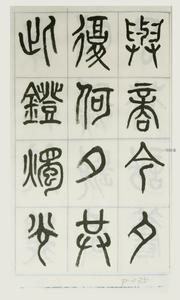 與商今夕
復何夕共
此鐙燭光